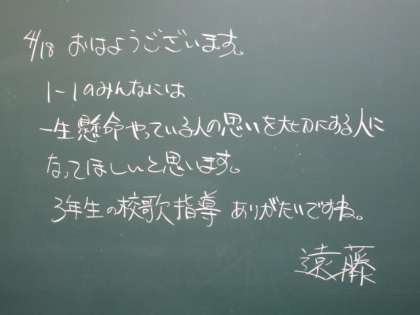 4/18 おはようございます。
1-1のみんなには
一生懸命やっている人の思いを大切にする人に
なってほしいと思います。
3年生の校歌指導 ありがたいですね。
遠藤